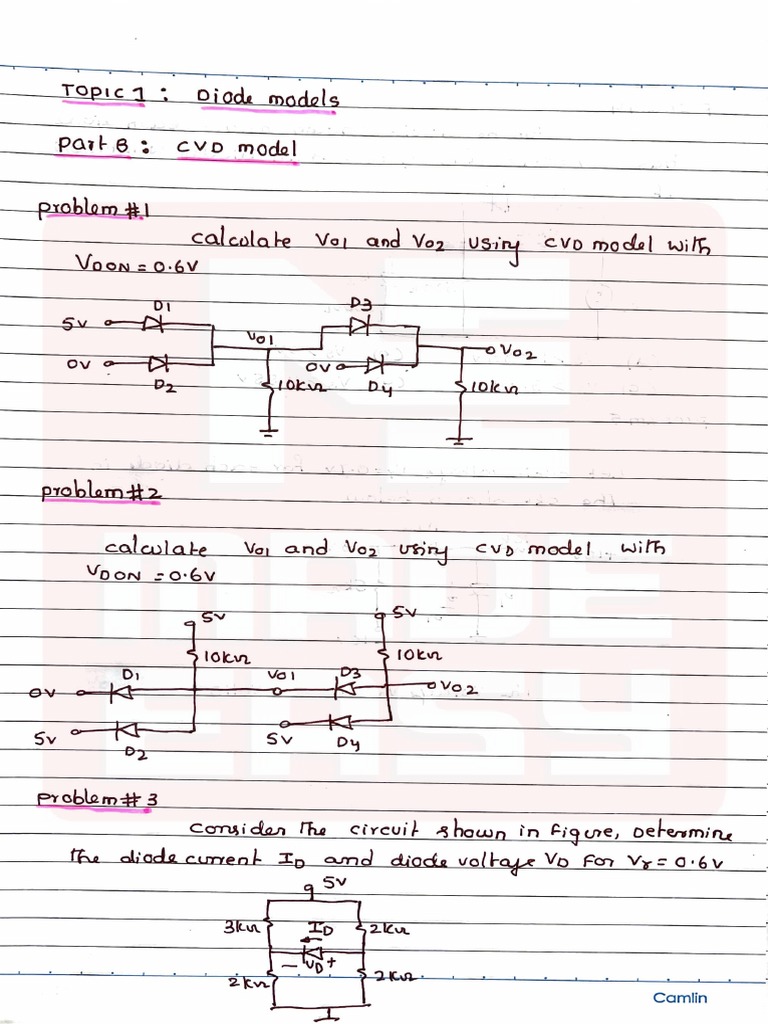 TOPIC 1 : Diode models
Part B : CVD model
problem #1
calculate Vo1 and Vo2 using CVD model with
VDON = 0.6V
D1
D3
5V
Vo1
Vo2
0V
0V
D2
10kΩ
D4
10kΩ
problem #2
calculate Vo1 and Vo2 using CVD model with
VDON = 0.6V
5V
5V
10kΩ
10kΩ
D1
Vo1
D3
0V
Vo2
5V
D2
5V
D4
problem # 3
consider the circuit shown in figure, Determine
the diode current ID and diode voltage VD for Vγ = 0.6V
5V
3kΩ
ID
2kΩ
- VD +
2kΩ
2kΩ
Camlin
ME
MADE
EASY